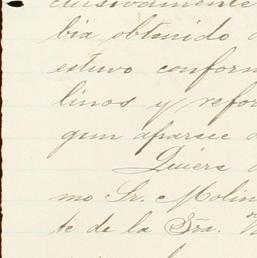 clusivamente
bia obtenido
estuvo conform
linos y refor
gun aparece
Quiera
mo Sr. Molin
te de la Sra.